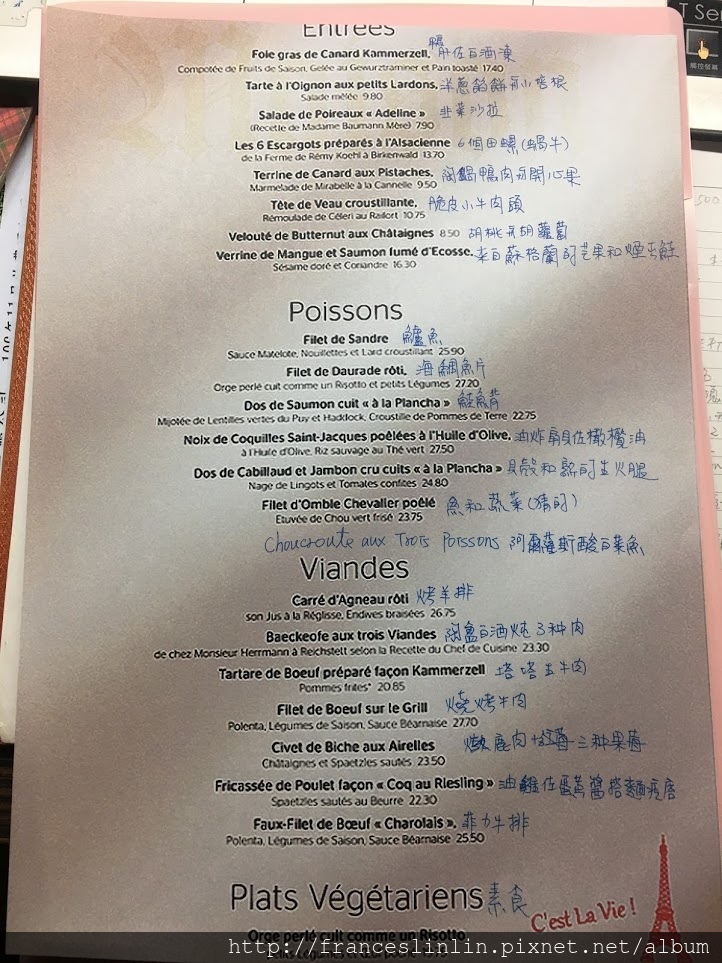 T Se
觸控螢幕
Entrées
Foie gras de Canard Kammerzell. 鴨肝佐白酒凍
Compotée de Fruits de Saison, Gelée au Gewurztraminer et Pain toasté 17.40
Tarte à l'Oignon aux petits Lardons. 洋蔥餡餅和小培根
Salade mêlée 9.80
Salade de Poireaux « Adeline » 韭菜沙拉
(Recette de Madame Baumann Mère) 7.90
Les 6 Escargots préparés à l'Alsacienne 6個田螺(蝸牛)
de la Ferme de Rémy Koehl à Birkenwald 13.70
Terrine de Canard aux Pistaches. 陶鍋鴨肉和開心果
Marmelade de Mirabelle à la Cannelle 9.50
Tête de Veau croustillante. 脆皮小牛肉頭
Rémoulade de Céleri au Raifort 10.75
Velouté de Butternut aux Châtaignes 8.50 胡桃和胡蘿蔔
Verrine de Mangue et Saumon fumé d'Ecosse. 來自蘇格蘭的芒果和煙燻鮭
Sésame doré et Coriandre 16.30
Poissons
Filet de Sandre 鱸魚
Sauce Matelote, Nouillettes et Lard croustillant 25.90
Filet de Daurade rôti. 海鯛魚片
Orge perlé cuit comme un Risotto et petits Légumes 27.20
Dos de Saumon cuit « à la Plancha » 鮭魚背
Mijotée de Lentilles vertes du Puy et Haddock, Croustille de Pommes de Terre 22.75
Noix de Coquilles Saint-Jacques poêlées à l'Huile d'Olive. 油炸扇貝佐橄欖油
à l'Huile d'Olive, Riz sauvage au Thé vert 27.50
Dos de Cabillaud et Jambon cru cuits « à la Plancha » 貝殼和熟的生火腿
Nage de Lingots et Tomates confites 24.80
Filet d'Omble Chevalier poêlé 魚和蔬菜(猜的)
Etuvée de Chou vert frisé 23.75
Choucroute aux Trois Poissons 阿爾薩斯酸白菜魚
Viandes
Carré d'Agneau rôti 烤羊排
son Jus à la Réglisse, Endives braisées 26.75
Baeckeofe aux trois Viandes 陶盅白酒炖3种肉
de chez Monsieur Herrmann à Reichstett selon la Recette du Chef de Cuisine 23.30
Tartare de Boeuf préparé façon Kammerzell 塔塔生牛肉
Pommes frites* 20.85
Filet de Boeuf sur le Grill 燒烤牛肉
Polenta, Légumes de Saison, Sauce Béarnaise 27.70
Civet de Biche aux Airelles 燉鹿肉 三种果莓
Châtaignes et Spaetzles sautés 23.50
Fricassée de Poulet façon « Coq au Riesling » 油雞佐蛋黃醬搭麵疙瘩
Spaetzles sautés au Beurre 22.30
Faux-Filet de Bœuf « Charolais ». 菲力牛排
Polenta, Légumes de Saison, Sauce Béarnaise 25.50
Plats Végétariens 素食
C'est La Vie !
Orge perlé cuit comme un Risotto
http://franceslinlin.pixnet.net/album